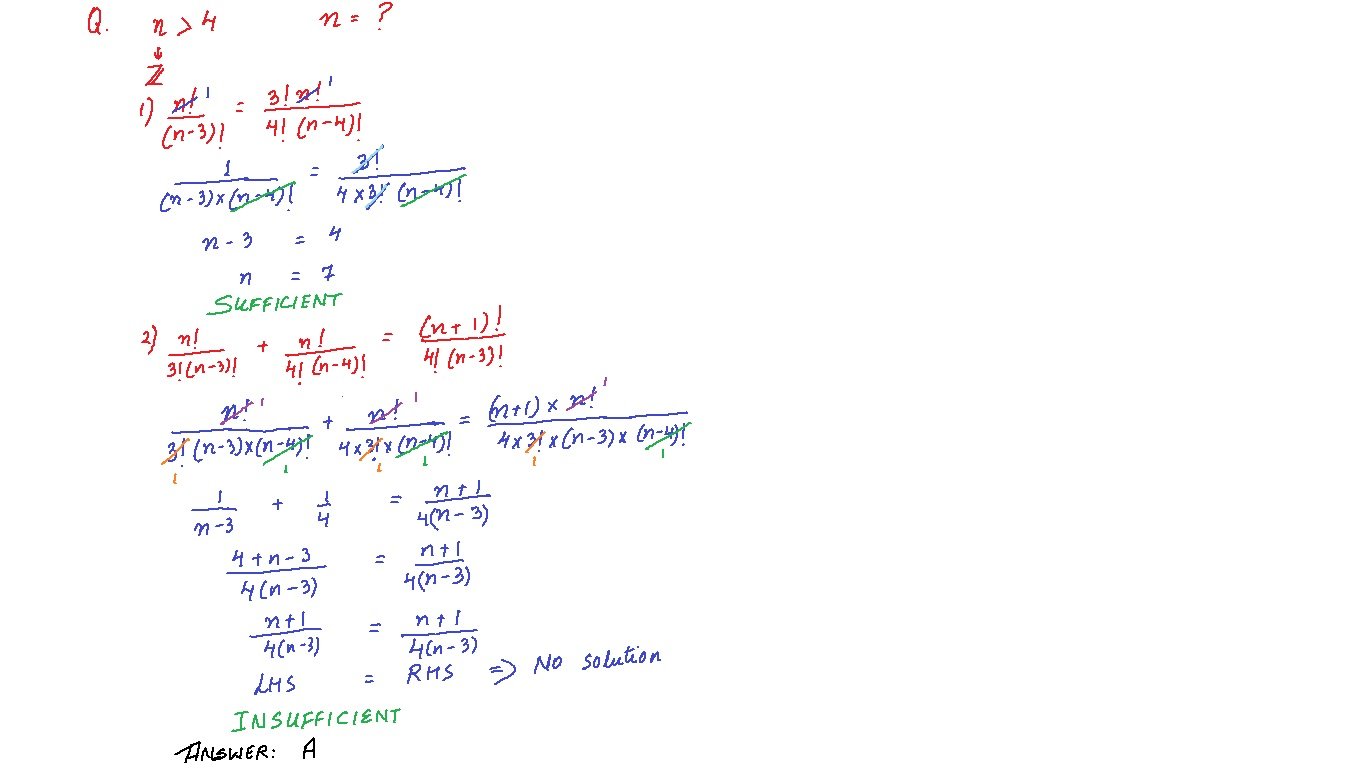 Q. n > 4 n = ?
↓
ℤ
1) n! 1 / (n-3)! = 3! n! 1 / 4! (n-4)!
1 / (n-3)×(n-4)! = 3! / 4×3! (n-4)!
n - 3 = 4
n = 7
SUFFICIENT
2) n! / 3!(n-3)! + n! / 4! (n-4)! = (n+1)! / 4! (n-3)!
n! 1 / 3! (n-3)×(n-4)! + n! 1 / 4×3!×(n-4)! = (n+1) × n! 1 / 4×3!×(n-3)×(n-4)!
1 1 1 1 1 1
1 / n-3 + 1 / 4 = n+1 / 4(n-3)
4+n-3 / 4(n-3) = n+1 / 4(n-3)
n+1 / 4(n-3) = n+1 / 4(n-3)
LHS = RHS ⇒ No solution
INSUFFICIENT
ANSWER: A